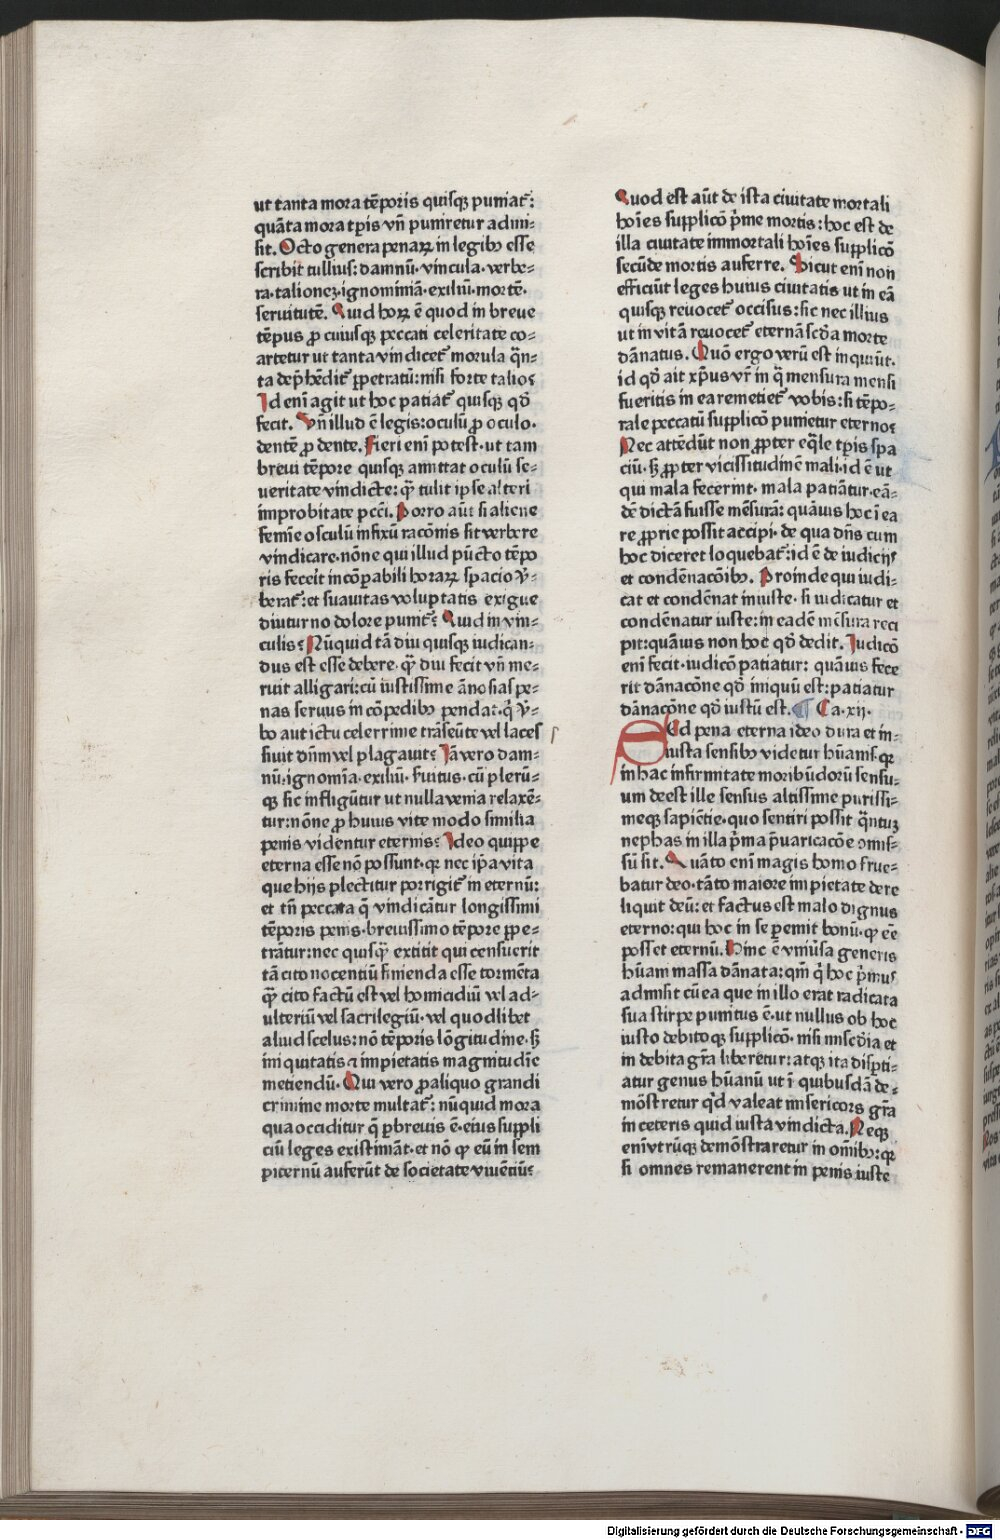 ut tanta mora tẽporis quiſqꝫ puniat᷑:
quãta mora tꝑis vñ puniretur admi⸗
ſit. Octo genera penaꝝ in legibꝰ eſſe
ſcribit tullius: damnũ· vincula· verbe⸗
ra· talionez· ignominiã· exiliũ· mortẽ·
ſeruitutẽ. Quid hoꝝ ẽ quod in breue
tẽpus ꝓ cuiuſqꝫ peccati celeritate co⸗
artetur ut tanta vindicet᷑ morula q̃n⸗
ta dep̃hẽdit᷑ ꝑpetratũ: niſi forte talio?
Id eni agit ut hoc patiat᷑ quiſqꝫ qđ
fecit. Vñ illud ẽ legis: oculũ ꝓ oculo·
dentẽ ꝓ dente. Fieri eni poteſt· ut tam
breui tẽpore quiſqꝫ amittat oculũ ſe⸗
ueritate vindicte: q̃ tulit ipſe alteri
improbitate pcci̇. Porro aut̃ ſi aliene
femie oſculũ infixũ racõnis ſit verbere
vindicare· nõne qui illud pũcto tẽpo
ris fecerit incõꝑabili horaꝝ ſpacio v̾⸗
berat᷑: et ſuauitas voluptatis exigue
diuturno dolore punit᷑? Quid in vin⸗
culis? Nũquid tã diu quiſqꝫ iudican⸗
dus eſt eſſe debere· q̃ diu fecit vñ me⸗
ruit alligari: cũ iuſtiſſime ãnoſas pe⸗
nas ſeruus in cõpedibꝰ pendat· q̇ v̾⸗
bo aut ictu celerrime trãſeũte vel laceſ
ſiuit dñm vel plagauit? Iã vero dam⸗
nũ· ignomia· exiliũ· ſeruitus· cũ plerũ⸗
qꝫ ſic infligũtur ut nulla venia relaxẽ⸗
tur: nõne ꝓ huius vite modo ſimilia
penis videntur eternis? Ideo quippe
eterna eſſe nõ poſſunt· qꝛ nec ip̃a vita
que hijs plectitur porrigit᷑ in eternũ:
et tñ peccata q̃ vindicãtur longiſſimi
tẽporis penis· breuiſſimo tẽpore ꝑpe⸗
trãtur: nec quiſq̃ extitit qui cenſuerit
tã cito nocentiũ finienda eſſe tormẽta
q̃ cito factũ eſt vel homicidiũ vel ad⸗
ulteriũ vel ſacrilegiũ· vel quodlibet
aliud ſcelus: nõ tẽporis lõgitudine· ſꝫ
iniquitatis ⁊ impietatis magnitudĩe
metiendũ. Qui vero ꝓ aliquo grandi
crimine morte multat᷑: nũquid mora
qua occiditur q̃ ꝑbreuis ẽ· eius ſuppli
ciũ leges exiſtimãt· et nõ ꝙ eũ in ſem
piternũ auferũt de ſocietate viuẽtiũ?
Quod eſt aũt de iſta ciuitate mortali
hoĩes ſupplicõ p̃me mortis: hoc eſt de
illa ciuitate immortali hoĩes ſupplicõ
ſecũde mortis auferre. Sicut eni non
efficiũt leges huius ciuitatis ut in eã
quiſqꝫ reuocet᷑ occiſus: ſic nec illius
ut in vitã reuocet᷑ eternã ſcđa morte
dãnatus. Quõ ergo verũ eſt inquiũt·
id qđ ait xp̃us vr̃ in q̃ menſura menſi
fueritis in ea remetiet᷑ vobis: ſi tẽpo⸗
rale peccatũ ſupplicõ punietur eterno?
Nec attẽdũt non ꝓpter eq̃le tꝑis ſpa
ciũ· ſꝫ ꝓpter viciſſitudinẽ mali· id ẽ ut
qui mala fecerint· mala patiãtur· eã⸗
dẽ dictã fuiſſe mẽſurã: quãuis hoc ĩ ea
re ꝓprie poſſit accipi· de qua dñs cum
hoc diceret loquebat᷑: id ẽ de iudicijs
et condẽnacõibꝰ. Proinde qui iudi⸗
cat et condẽnat iniuſte· ſi iudicatur et
condẽnatur iuſte: in eadẽ mẽſura reci
pit: quãuis non hoc qđ dedit. Iudicõ
eni fecit· iudicõ patiatur: quãuis fece
rit dãnacõne qđ iniquũ eſt: patiatur
dãnacõne qđ iuſtũ eſt. ¶ Ca· xij·
SEd pena eterna ideo dura et in⸗
iuſta ſenſibꝰ videtur hũanis· qꝛ
in hac infirmitate moribũdorũ ſenſu⸗
um deeſt ille ſenſus altiſſime puriſſi⸗
meqꝫ ſapiẽtie· quo ſentiri poſſit q̃ntuꝫ
nephas in illa p̃ma p̃uaricacõe omiſ⸗
ſũ ſit. Quãto eni magis homo frue⸗
batur deo· tãto maiore impietate dere
liquit deũ: et factus eſt malo dignus
eterno: qui hoc in ſe ꝑemit bonũ· ꝙ eẽ
poſſet eternũ. Hinc ẽ vniũſa generis
hũani maſſa dãnata: qm̃ q̇ hoc p̃mus
admiſit cũ ea que in illo erat radicata
ſua ſtirpe punitus ẽ· ut nullus ob hoc
iuſto debitoqꝫ ſupplicõ· niſi miſcđia et
indebita gr̃a liberetur: atqꝫ ita diſꝑti⸗
atur genus hũanũ ut ĩ quibuſdã de⸗
mõſtretur q̇d valeat miſericors gr̃a
in ceteris quid iuſta vindicta. Neqꝫ
eni vtrũqꝫ demõſtraretur in oĩibꝰ: qꝛ
ſi omnes remanerent in penis iuſte
Digitalisierung gefördert durch die Deutsche Forschungsgemeinschaft - DFG